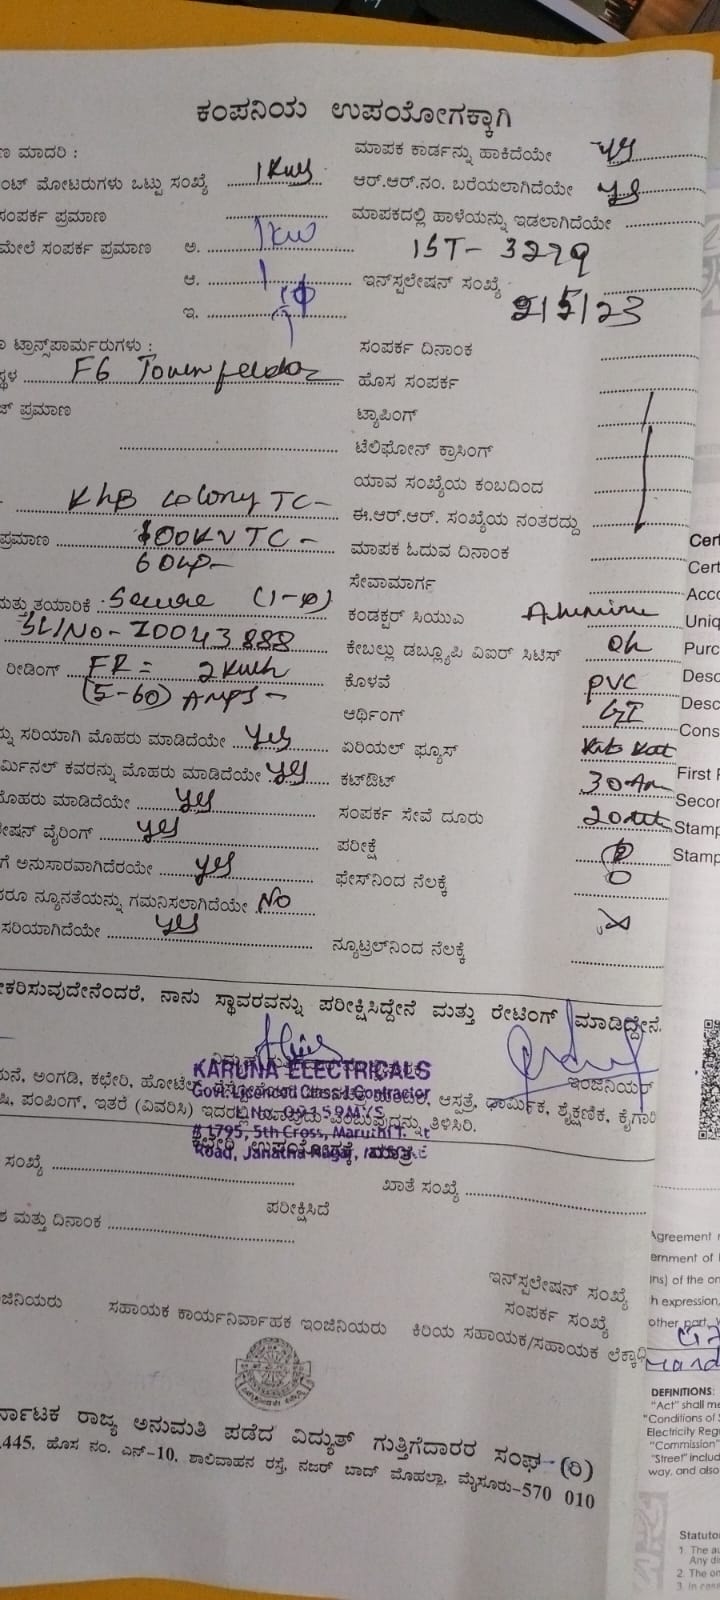 ಕಂಪನಿಯ ಉಪಯೋಗಕ್ಕಾಗಿ
ಣ ಮಾದರಿ :
ಮಾಪಕ ಕಾರ್ಡನ್ನು ಹಾಕಿದೆಯೇ yes
ಂಟ್ ಮೋಟರುಗಳು ಒಟ್ಟು ಸಂಖ್ಯೆ
ಆರ್.ಆರ್.ನಂ. ಬರೆಯಲಾಗಿದೆಯೇ yes
ಸಂಪರ್ಕ ಪ್ರಮಾಣ
ಮಾಪಕದಲ್ಲಿ ಹಾಳೆಯನ್ನು ಇಡಲಾಗಿದೆಯೇ
ಮೇಲೆ ಸಂಪರ್ಕ ಪ್ರಮಾಣ ಅ. 1 kw
IST- 3279
ಆ. 1
ಇನ್‌ಸ್ಟಲೇಷನ್ ಸಂಖ್ಯೆ
ಇ. 1φ
2/5/23
ಟ್ರಾನ್ಸ್‌ಪಾರ್ಮರುಗಳು :
ಸಂಪರ್ಕ ದಿನಾಂಕ
ಸ್ಥಳ F6 Town feeder
ಹೊಸ ಸಂಪರ್ಕ
ಪ್ರಮಾಣ
ಟ್ಯಾಪಿಂಗ್
ಟೆಲಿಫೋನ್ ಕ್ರಾಸಿಂಗ್
KHB Colony TC-
ಯಾವ ಸಂಖ್ಯೆಯ ಕಂಬದಿಂದ
ಈ.ಆರ್.ಆರ್. ಸಂಖ್ಯೆಯ ನಂತರದ್ದು
ಪ್ರಮಾಣ 100KV TC -
ಮಾಪಕ ಓದುವ ದಿನಾಂಕ
ಸೇವಾಮಾರ್ಗ
ಮತ್ತು ತಯಾರಿಕೆ Secure (1-φ)
ಕಂಡಕ್ಟರ್ ಸಿಯುಎ
Sl/No-
ಕೇಬಲ್ಲು ಡಬ್ಲ್ಯೂಪಿ ವಿಐರ್ ಸಿಟಿಸ್ Oh
ರೀಡಿಂಗ್ FR = 2 Kwh
ಕೊಳವೆ PVC
(5-60) AMPS-
ಆರ್ಥಿಂಗ್ GI
ನ್ನು ಸರಿಯಾಗಿ ಮೊಹರು ಮಾಡಿದೆಯೇ yes
ಏರಿಯಲ್ ಫ್ಯೂಸ್
ರ್ಮಿನಲ್ ಕವರನ್ನು ಮೊಹರು ಮಾಡಿದೆಯೇ yes
ಕಟ್‌ಔಟ್ 30 Am
ಮೊಹರು ಮಾಡಿದೆಯೇ yes
ಸಂಪರ್ಕ ಸೇವೆ ದೂರು
ೇಷನ್ ವೈರಿಂಗ್ yes
ಪರೀಕ್ಷೆ
ಗೆ ಅನುಸಾರವಾಗಿದೆರಯೇ yes
ಫೇಸ್‌ನಿಂದ ನೆಲಕ್ಕೆ
ದರೂ ನ್ಯೂನತೆಯನ್ನು ಗಮನಿಸಲಾಗಿದೆಯೇ No
ಸರಿಯಾಗಿದೆಯೇ yes
ನ್ಯೂಟ್ರಲ್‌ನಿಂದ ನೆಲಕ್ಕೆ
ಕರಿಸುವುದೇನೆಂದರೆ, ನಾನು ಸ್ಥಾವರವನ್ನು ಪರೀಕ್ಷಿಸಿದ್ದೇನೆ ಮತ್ತು ರೇಟಿಂಗ್ ಮಾಡಿದ್ದೇನೆ.
ಇಂಜಿನಿಯರ್
KARUNA ELECTRICALS
Govt. Licenced Class-1 Contractor
# 1795, 5th Cross,
Road, Janatha Nagar,
ಮನೆ, ಅಂಗಡಿ, ಕಛೇರಿ, ಹೋಟೆಲ್ ಆಸ್ಪತ್ರೆ, ಧಾರ್ಮಿಕ, ಶೈಕ್ಷಣಿಕ, ಕೈಗಾರಿ
ಪಂಪಿಂಗ್, ಇತರೆ (ವಿವರಿಸಿ) ತಿಳಿಸಿರಿ.
ಕಛೇರಿ ಉಪಯೋಗಕ್ಕೆ ಮಾತ್ರ
ಸಂಖ್ಯೆ
ಖಾತೆ ಸಂಖ್ಯೆ
ಪರೀಕ್ಷಿಸಿದೆ
ಮತ್ತು ದಿನಾಂಕ
ಇನ್‌ಸ್ಟಲೇಷನ್ ಸಂಖ್ಯೆ
ಸಂಪರ್ಕ ಸಂಖ್ಯೆ
ಜಿನಿಯರು ಸಹಾಯಕ ಕಾರ್ಯನಿರ್ವಾಹಕ ಇಂಜಿನಿಯರು ಕಿರಿಯ ಸಹಾಯಕ/ಸಹಾಯಕ ಲೆಕ್ಕಾಧಿ
ರ್ನಾಟಕ ರಾಜ್ಯ ಅನುಮತಿ ಪಡೆದ ವಿದ್ಯುತ್ ಗುತ್ತಿಗೆದಾರರ ಸಂಘ (ರಿ)
.445, ಹೊಸ ನಂ. ಎನ್-10, ಶಾಲಿವಾಹನ ರಸ್ತೆ, ನಜರ್ ಬಾದ್ ಮೊಹಲ್ಲಾ, ಮೈಸೂರು-570 010
Cert
Cert
Acco
Uniq
Purc
Desc
Desc
Cons
First
Secon
Stamp
Stamp
Agreement
ernment of
ns) of the on
h expression,
other part.
DEFINITIONS:
"Act" shall me
"Conditions of
Electricity Reg
"Commission"
"Street" includ
way, and also
Statutor
1. The au
Any di
2. The on
3. In case